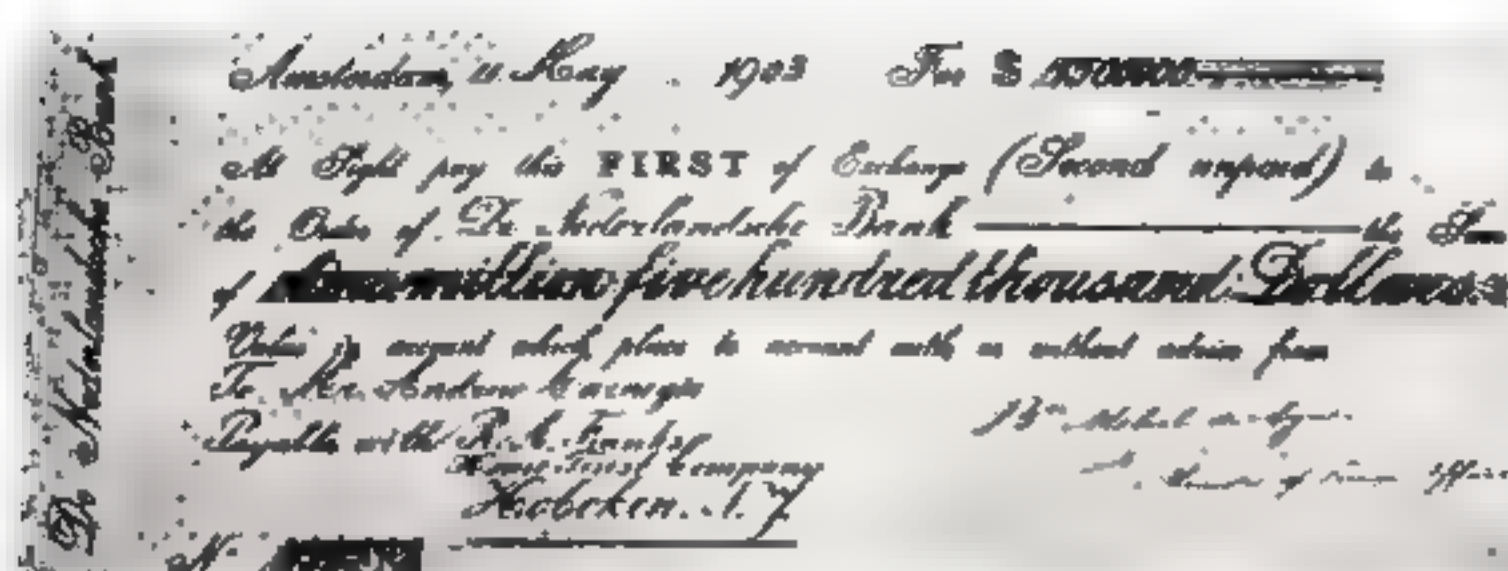 De Nederlandsche Bank
Amsterdam, May 1903 For $
At Sight pay this FIRST of Exchange (Second unpaid) to
the Order of De Nederlandsche Bank the Sum
of million five hundred thousand Dollars
Value in account which place to account with or without advice from
To Mr. Andrew Carnegie
Payable with R. A. Franks
Home Trust Company
Hoboken. N. J.
No